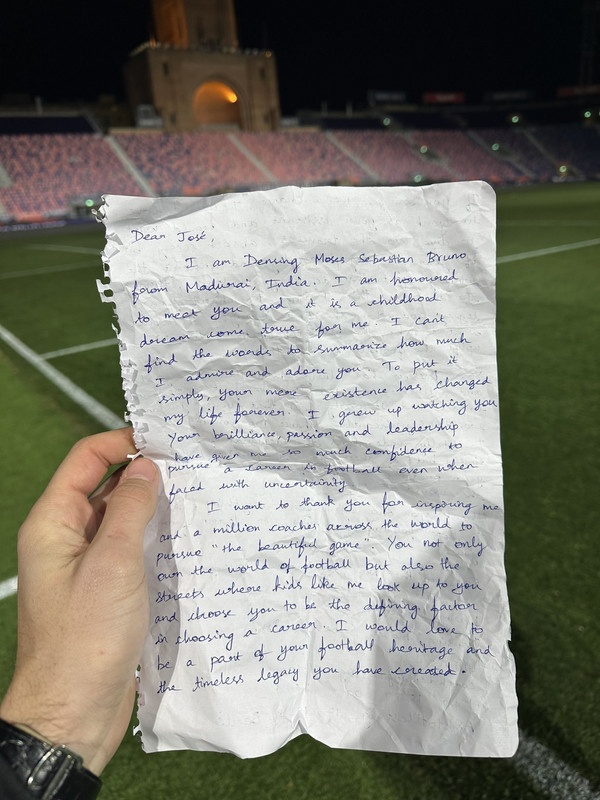 Dear José,
I am Denzing Moses Sebastian Bruno
from Madurai, India. I am honoured
to meet you and it is a childhood
dream come true for me. I can't
find the words to summarize how much
I admire and adore you. To put it
simply, your mere existence has changed
my life forever. I grew up watching you
Your brilliance, passion and leadership
have given me so much confidence to
pursue a career in football even when
faced with uncertainity
I want to thank you for inspiring me
and a million coaches across the world to
pursue "the beautiful game". You not only
own the world of football but also the
streets where kids like me look up to you
and choose you to be the defining factor
in choosing a career. I would love to
be a part of your football heritage and
the timeless legacy you have created.